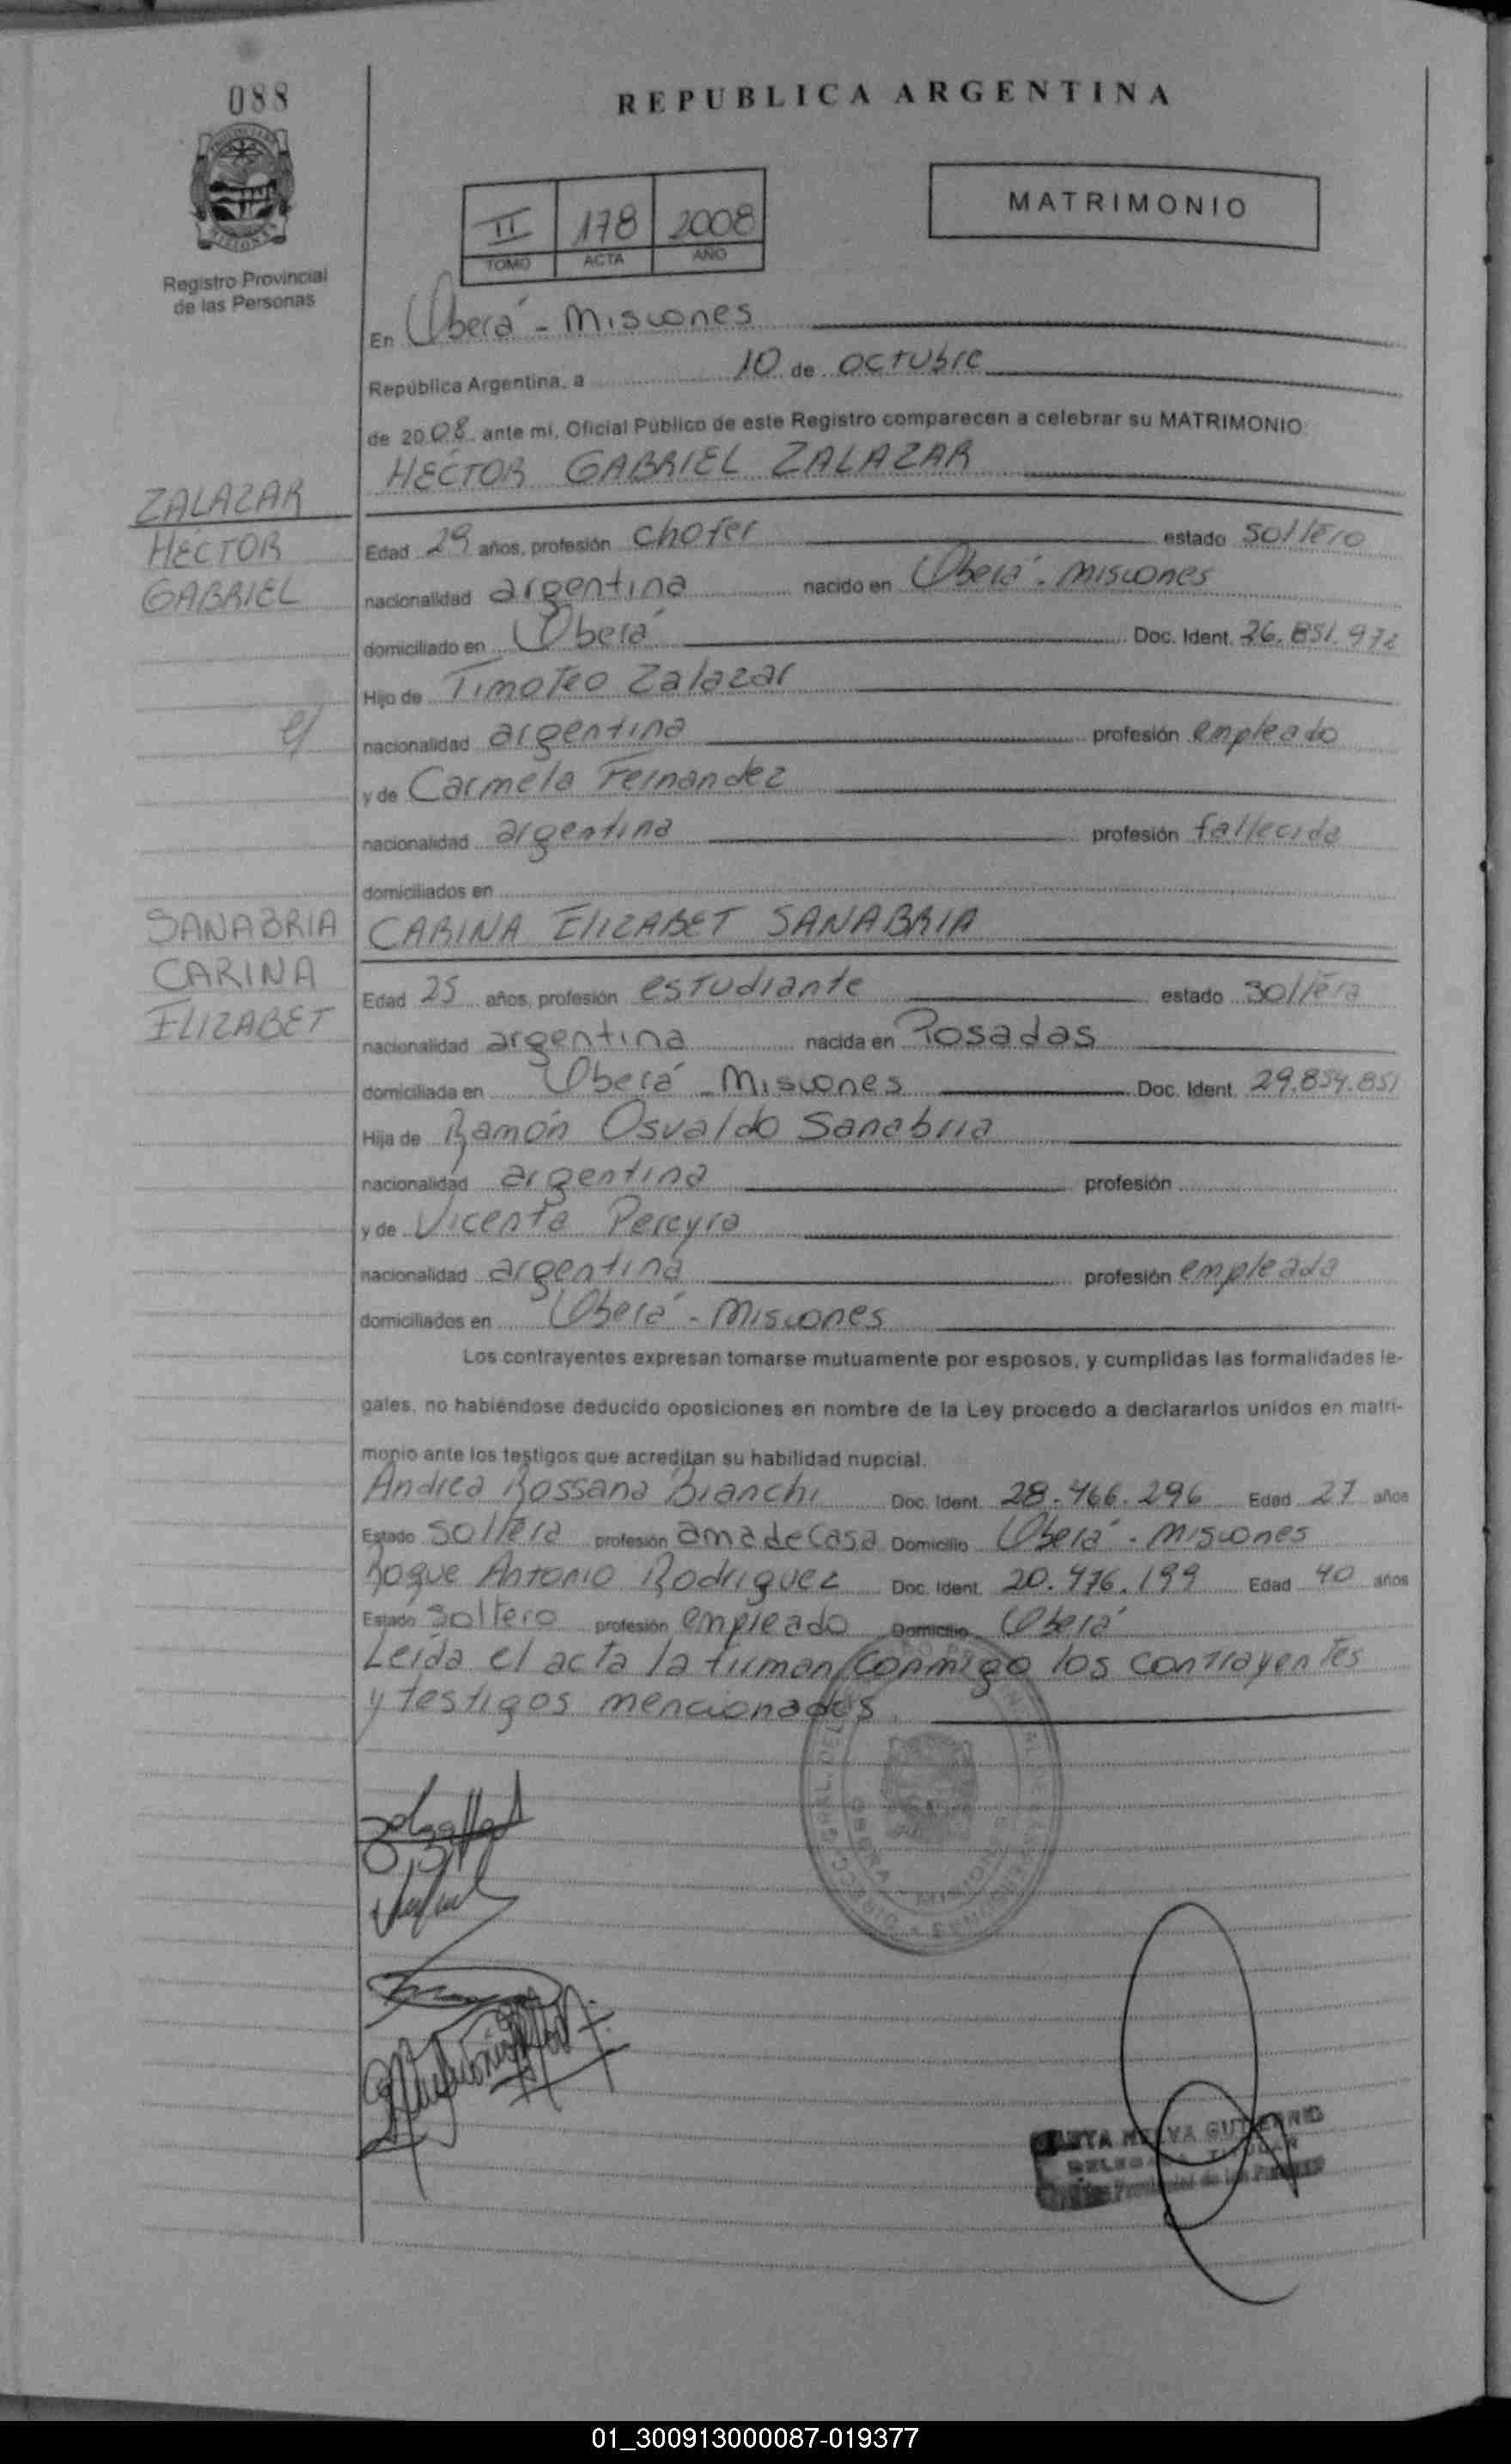 088
REPUBLICA ARGENTINA
II 178 2008
TOMO ACTA AÑO
MATRIMONIO
Registro Provincial
de las Personas
En Oberá - Misiones
República Argentina, a 10 de octubre
de 2008 ante mí, Oficial Público de este Registro comparecen a celebrar su MATRIMONIO
HÉCTOR GABRIEL ZALAZAR
ZALAZAR
HÉCTOR
GABRIEL
Edad 29 años, profesión chofer estado soltero
nacionalidad argentina nacido en Oberá - Misiones
domiciliado en Oberá Doc. Ident. 26.851.972
Hijo de Timoteo Zalazar
nacionalidad argentina profesión empleado
y de Carmela Fernandez
nacionalidad argentina profesión fallecida
domiciliados en
SANABRIA
CARINA
ELIZABET
CARINA ELIZABET SANABRIA
Edad 25 años, profesión estudiante estado soltera
nacionalidad argentina nacida en Posadas
domiciliada en Oberá - Misiones Doc. Ident. 29.854.851
Hija de Ramón Osvaldo Sanabria
nacionalidad argentina profesión
y de Vicenta Pereyra
nacionalidad argentina profesión empleada
domiciliados en Oberá - Misiones
Los contrayentes expresan tomarse mutuamente por esposos, y cumplidas las formalidades le-
gales, no habiéndose deducido oposiciones en nombre de la Ley procedo a declararlos unidos en matri-
monio ante los testigos que acreditan su habilidad nupcial.
Andrea Rossana Bianchi Doc. Ident. 28.466.296 Edad 27 años
Estado soltera profesión ama de casa Domicilio Oberá - Misiones
Roque Antonio Rodriguez Doc. Ident. 20.476.199 Edad 40 años
Estado soltero profesión empleado Domicilio Oberá
Leída el acta la firman conmigo los contrayentes
y testigos mencionados.
OBERA MISIONES
01_300913000087-019377